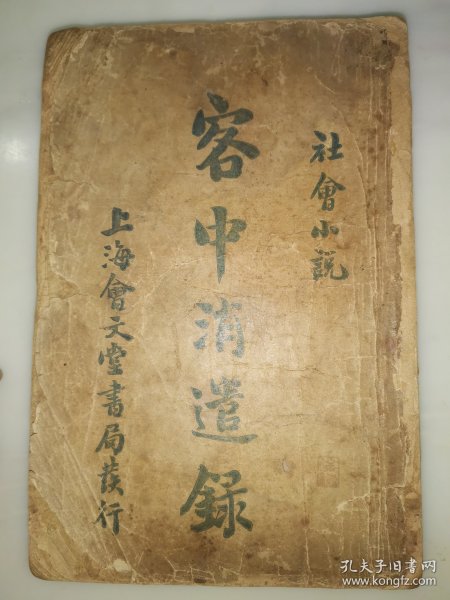 社會小説
客中消遣録
上海會文堂書局發行
孔夫子旧书网
www.kongfz.com